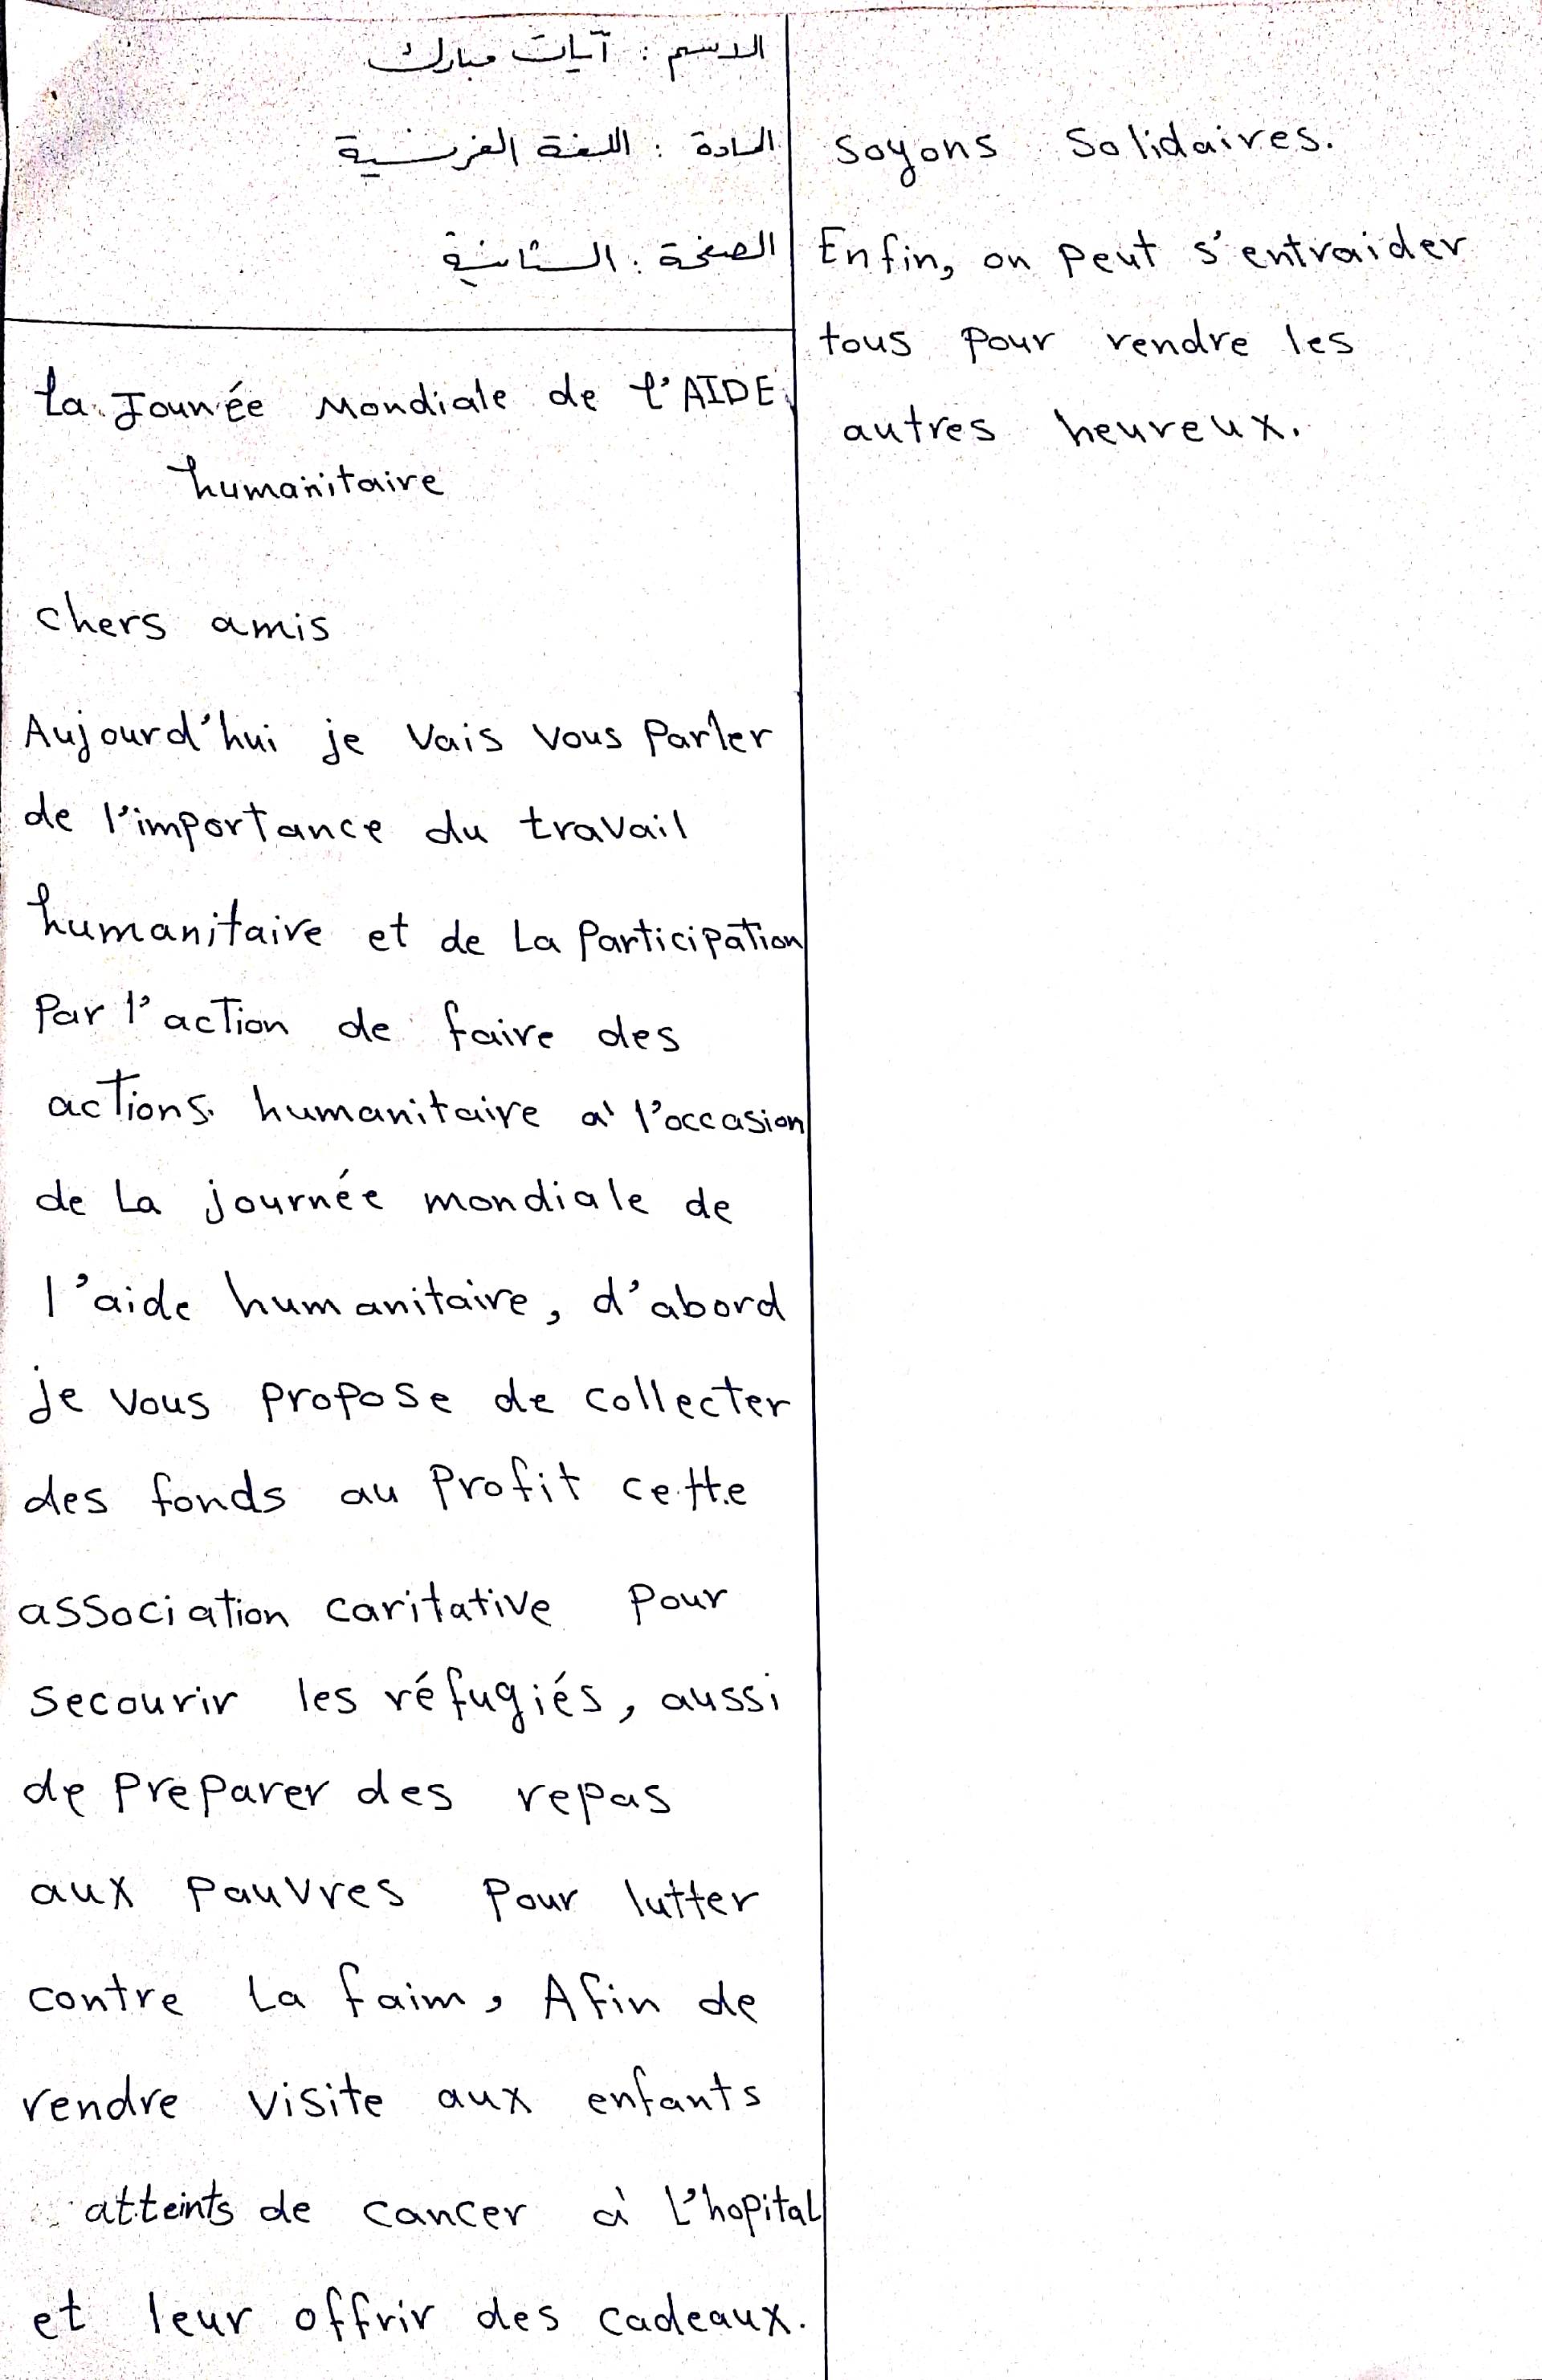 الاسم : آيات مبارك
المادة : اللغة الفرنسية
الصفحة : الثانية
La Jounée Mondiale de l'AIDE
humanitaire
chers amis
Aujourd'hui je vais vous parler
de l'importance du travail
humanitaire et de La Participation
Par l'action de faire des
actions humanitaire à l'occasion
de La journée mondiale de
l'aide humanitaire, d'abord
je vous propose de collecter
des fonds au Profit cette
association caritative pour
secourir les réfugiés, aussi
de preparer des repas
aux pauvres pour lutter
contre La faim, Afin de
rendre visite aux enfants
atteints de cancer à L'hopital
et leur offrir des cadeaux.
soyons solidaires.
Enfin, on peut s'entraider
tous pour rendre les
autres heureux.